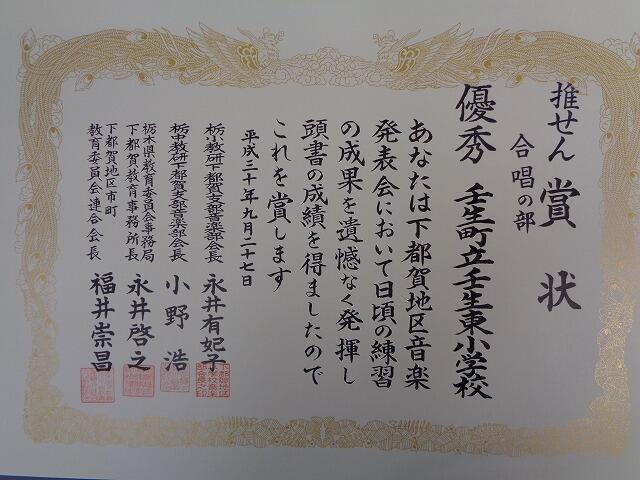 推せん
賞状
合唱の部
優秀 壬生町立壬生東小学校
あなたは下都賀地区音楽
発表会において日頃の練習
の成果を遺憾なく発揮し
頭書の成績を得ましたので
これを賞します
平成三十年九月二十七日
栃小教研下都賀支部音楽部会長 永井有妃子
栃中教研下都賀支部音楽部会長 小野浩
栃木県教育委員会事務局
下都賀教育事務所長 永井啓之
下都賀地区市町
教育委員会連合会長 福井崇昌